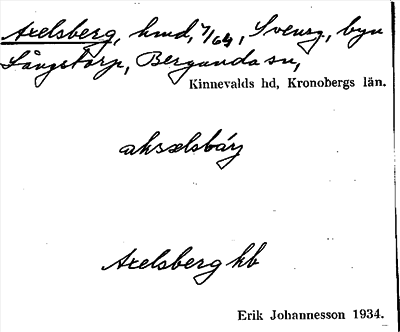 Axelsberg, hmd, 1/64, Sven​sg, byn
Långstorp, Bergunda sn,
Kinnevalds hd, Kronobergs län.
aksəlsbáry
Axelsberg hb
Erik Johannesson 1934.